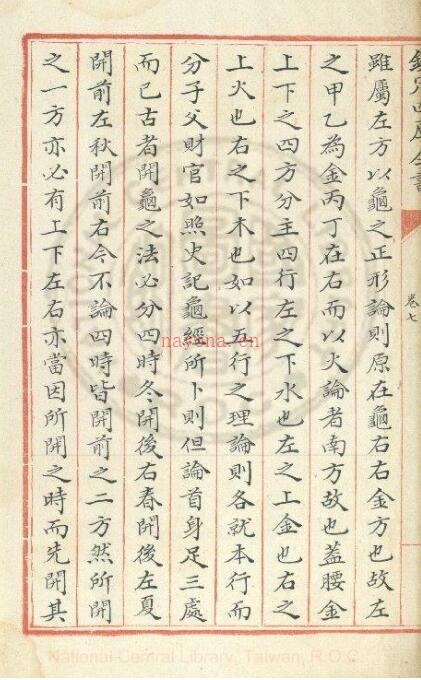 欽定四庫全書
卷七
雖屬左方以龜之正形論則原在龜右右金方也故左
之甲乙為金丙丁在右而以火論者南方故也葢腰金
上下之四方分主四行左之下水也左之上金也右之
上火也右之下木也如以五行之理論則各就本行而
分子父財官如照史記龜經所卜則但論首身足三處
而已古者開龜之法必分四時冬開後右春開後左夏
開前左秋開前右今不論四時皆開前之二方然所開
之一方亦必有上下左右亦當因所開之時而先開其
nayona.cn
National Central Library, Taiwan, R.O.C